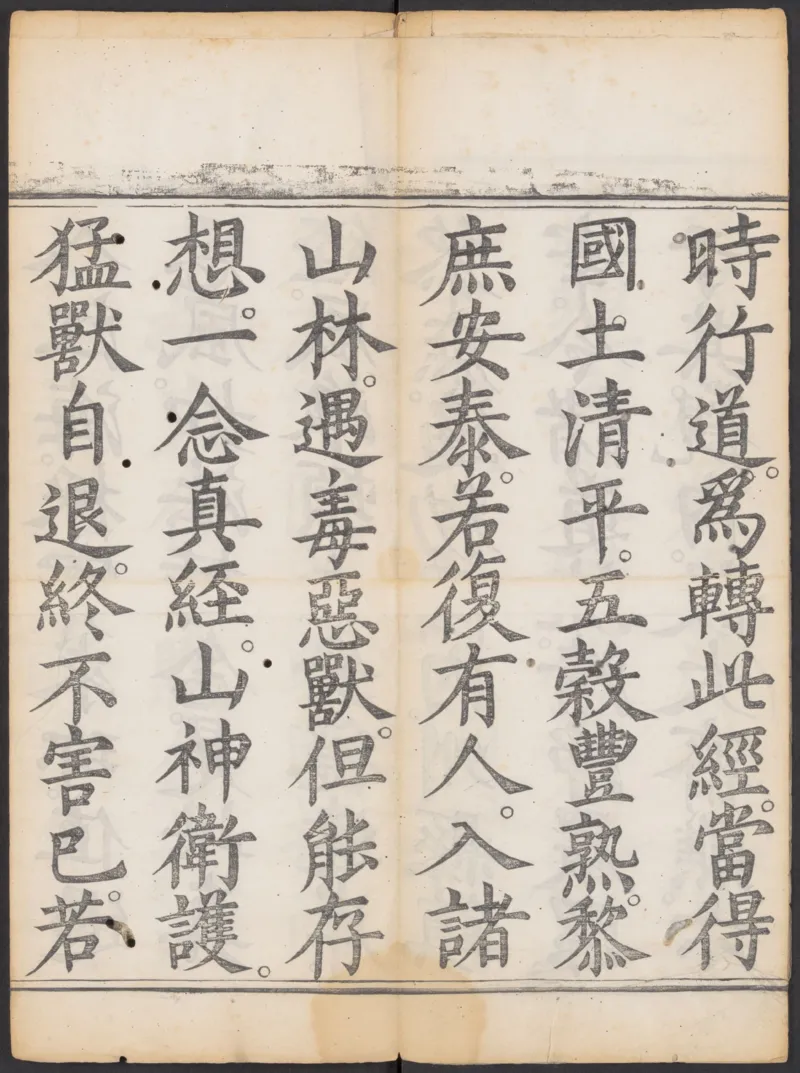 時行道。爲轉此經。當得
國土清平。五穀豐熟。黎
庶安泰。若復有人。入諸
山林。遇毒惡獸。但能存
想。一念真経。山神衛護。
猛獸自退。終不害已。若